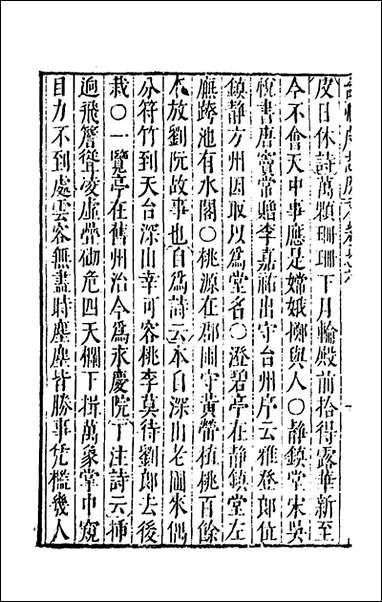 皮日休詩萬顆珊珊下月輪殿前拾得露華新至
今不會天中事應是嫦娥擲與人〇靜鎮堂宋吳
悅書唐竇常贈李嘉祐出守台州序云雅登郎位
鎮靜方州因取以爲堂名〇澄碧亭在靜鎮堂左
廡踣池有水閣〇桃源在郡圃守黃㽦植桃百餘
本放劉阮故事也自爲詩云本自深山老圃來偶
分符竹到天台深山幸可容桃李莫待劉郎去後
栽〇一覽亭在舊州治今爲永慶院丁注詩云揷
逈飛簷聳凌虛疊砌危四天欄下拱萬象掌中窺
目力不到處雲容無盡時塵塵皆勝事凭檻幾人